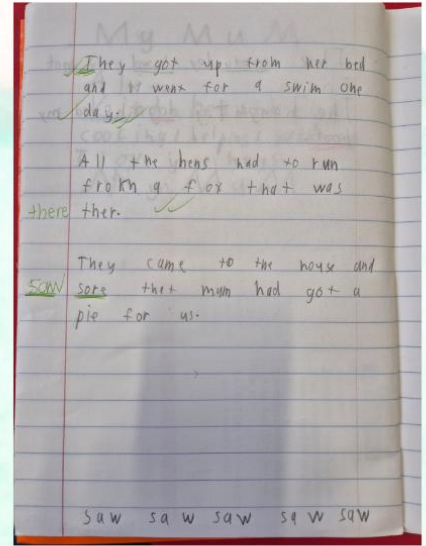 They got up from her bed
and went for a swim one
day.
All the hens had to run
from a fox that was
there ther.
They came to the house and
saw sore thet mum had got a
pie for us.
saw saw saw saw saw